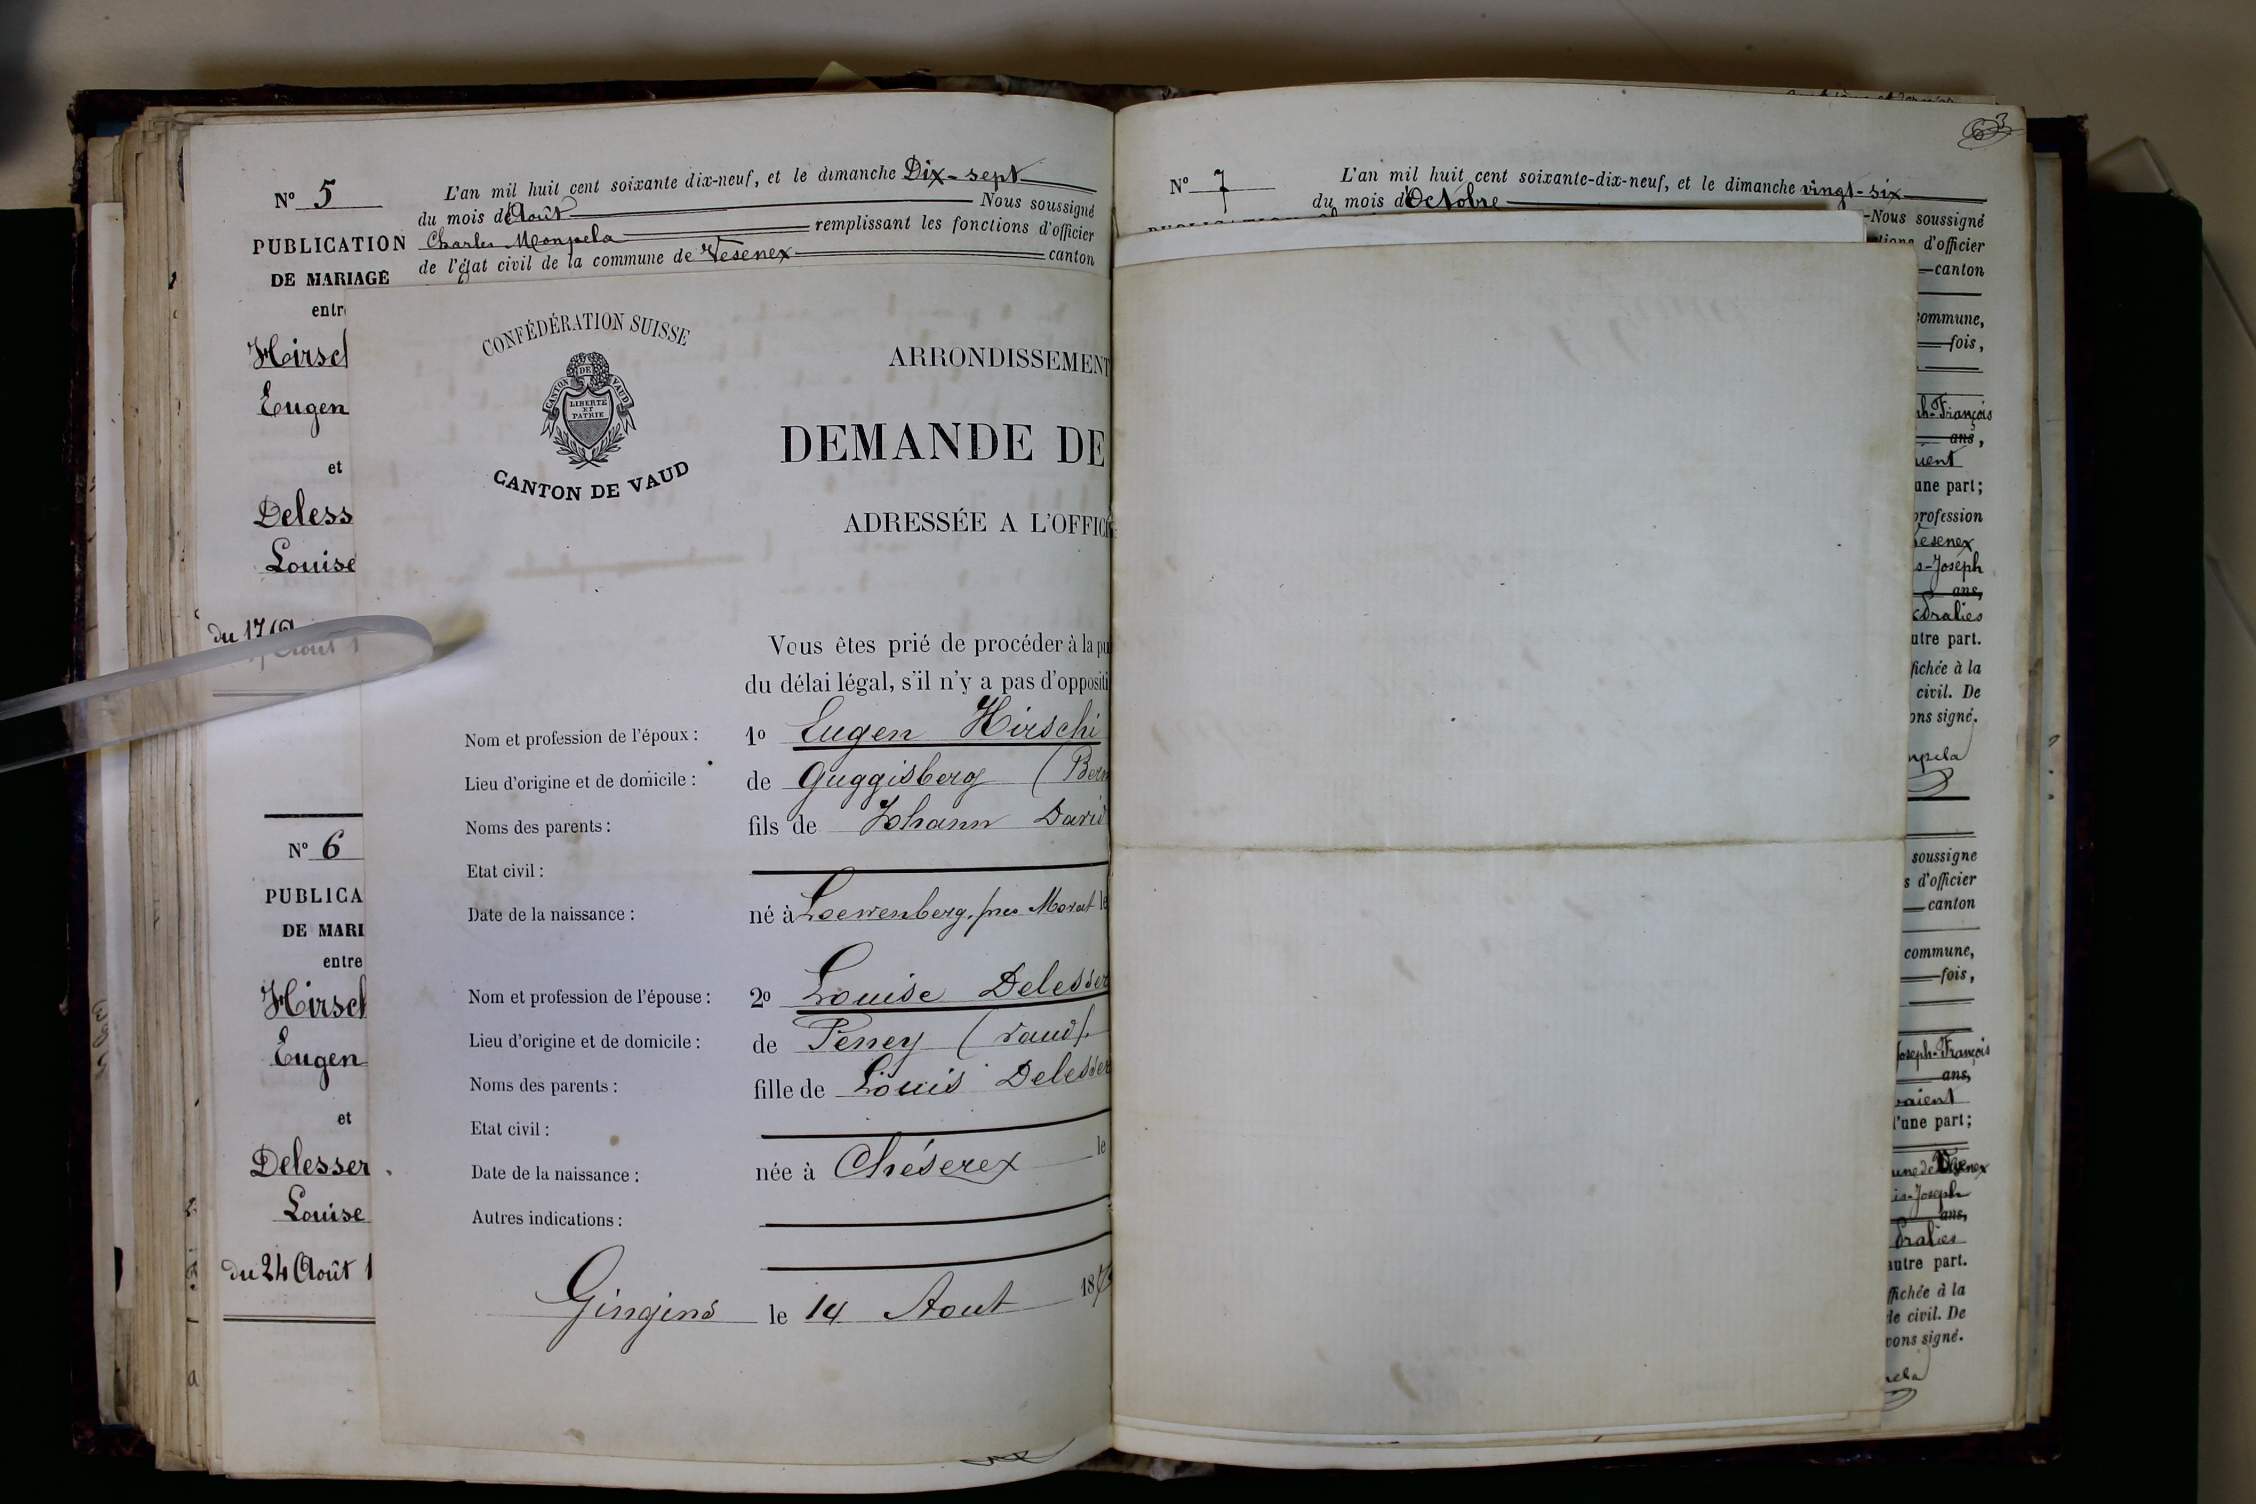 N° 5
L'an mil huit cent soixante dix-neuf, et le dimanche Dix-sept
du mois d'Août Nous soussigné
PUBLICATION
Charles Monpela remplissant les fonctions d'officier
de l'état civil de la commune de Vesenex canton
DE MARIAGE
entr
Hirsch
Eugen
et
Deless
Louise
du 17 Août 1
N° 6
PUBLICA
DE MARI
entre
Hirsch
Eugen
et
Delesser
Louise
du 24 Août 1
CONFÉDÉRATION SUISSE
CANTON DE VAUD
LIBERTÉ
ET
PATRIE
CANTON DE VAUD
ARRONDISSEMENT
DEMANDE DE
ADRESSÉE A L'OFFICI
Vous êtes prié de procéder à la pu
du délai légal, s'il n'y a pas d'oppositi
Nom et profession de l'époux : 1o Eugen Hirschi
Lieu d'origine et de domicile : de Guggisberg (Bern
Noms des parents : fils de Johann David
Etat civil :
Date de la naissance : né à Loewenberg, près Morat le
Nom et profession de l'épouse : 2o Louise Delesser
Lieu d'origine et de domicile : de Peney (Vaud).
Noms des parents : fille de Louis Delesser
Etat civil :
Date de la naissance : née à Chéserex le
Autres indications :
Gingins le 14 Aout 187
63
N° 7
L'an mil huit cent soixante-dix-neuf, et le dimanche vingt-six
du mois d'Octobre
Nous soussigné
d'officier
canton
commune,
fois,
ph-François
ans,
aient
une part;
profession
Vesenex
s-Joseph
ans,
utre part.
fichée à la
civil. De
ons signé.
npela
soussigné
s d'officier
canton
commune,
fois,
Joseph-François
ans,
vaient
l'une part;
une de Vesenex
is-Joseph
ans,
autre part.
ffichée à la
de civil. De
vons signé.
pela